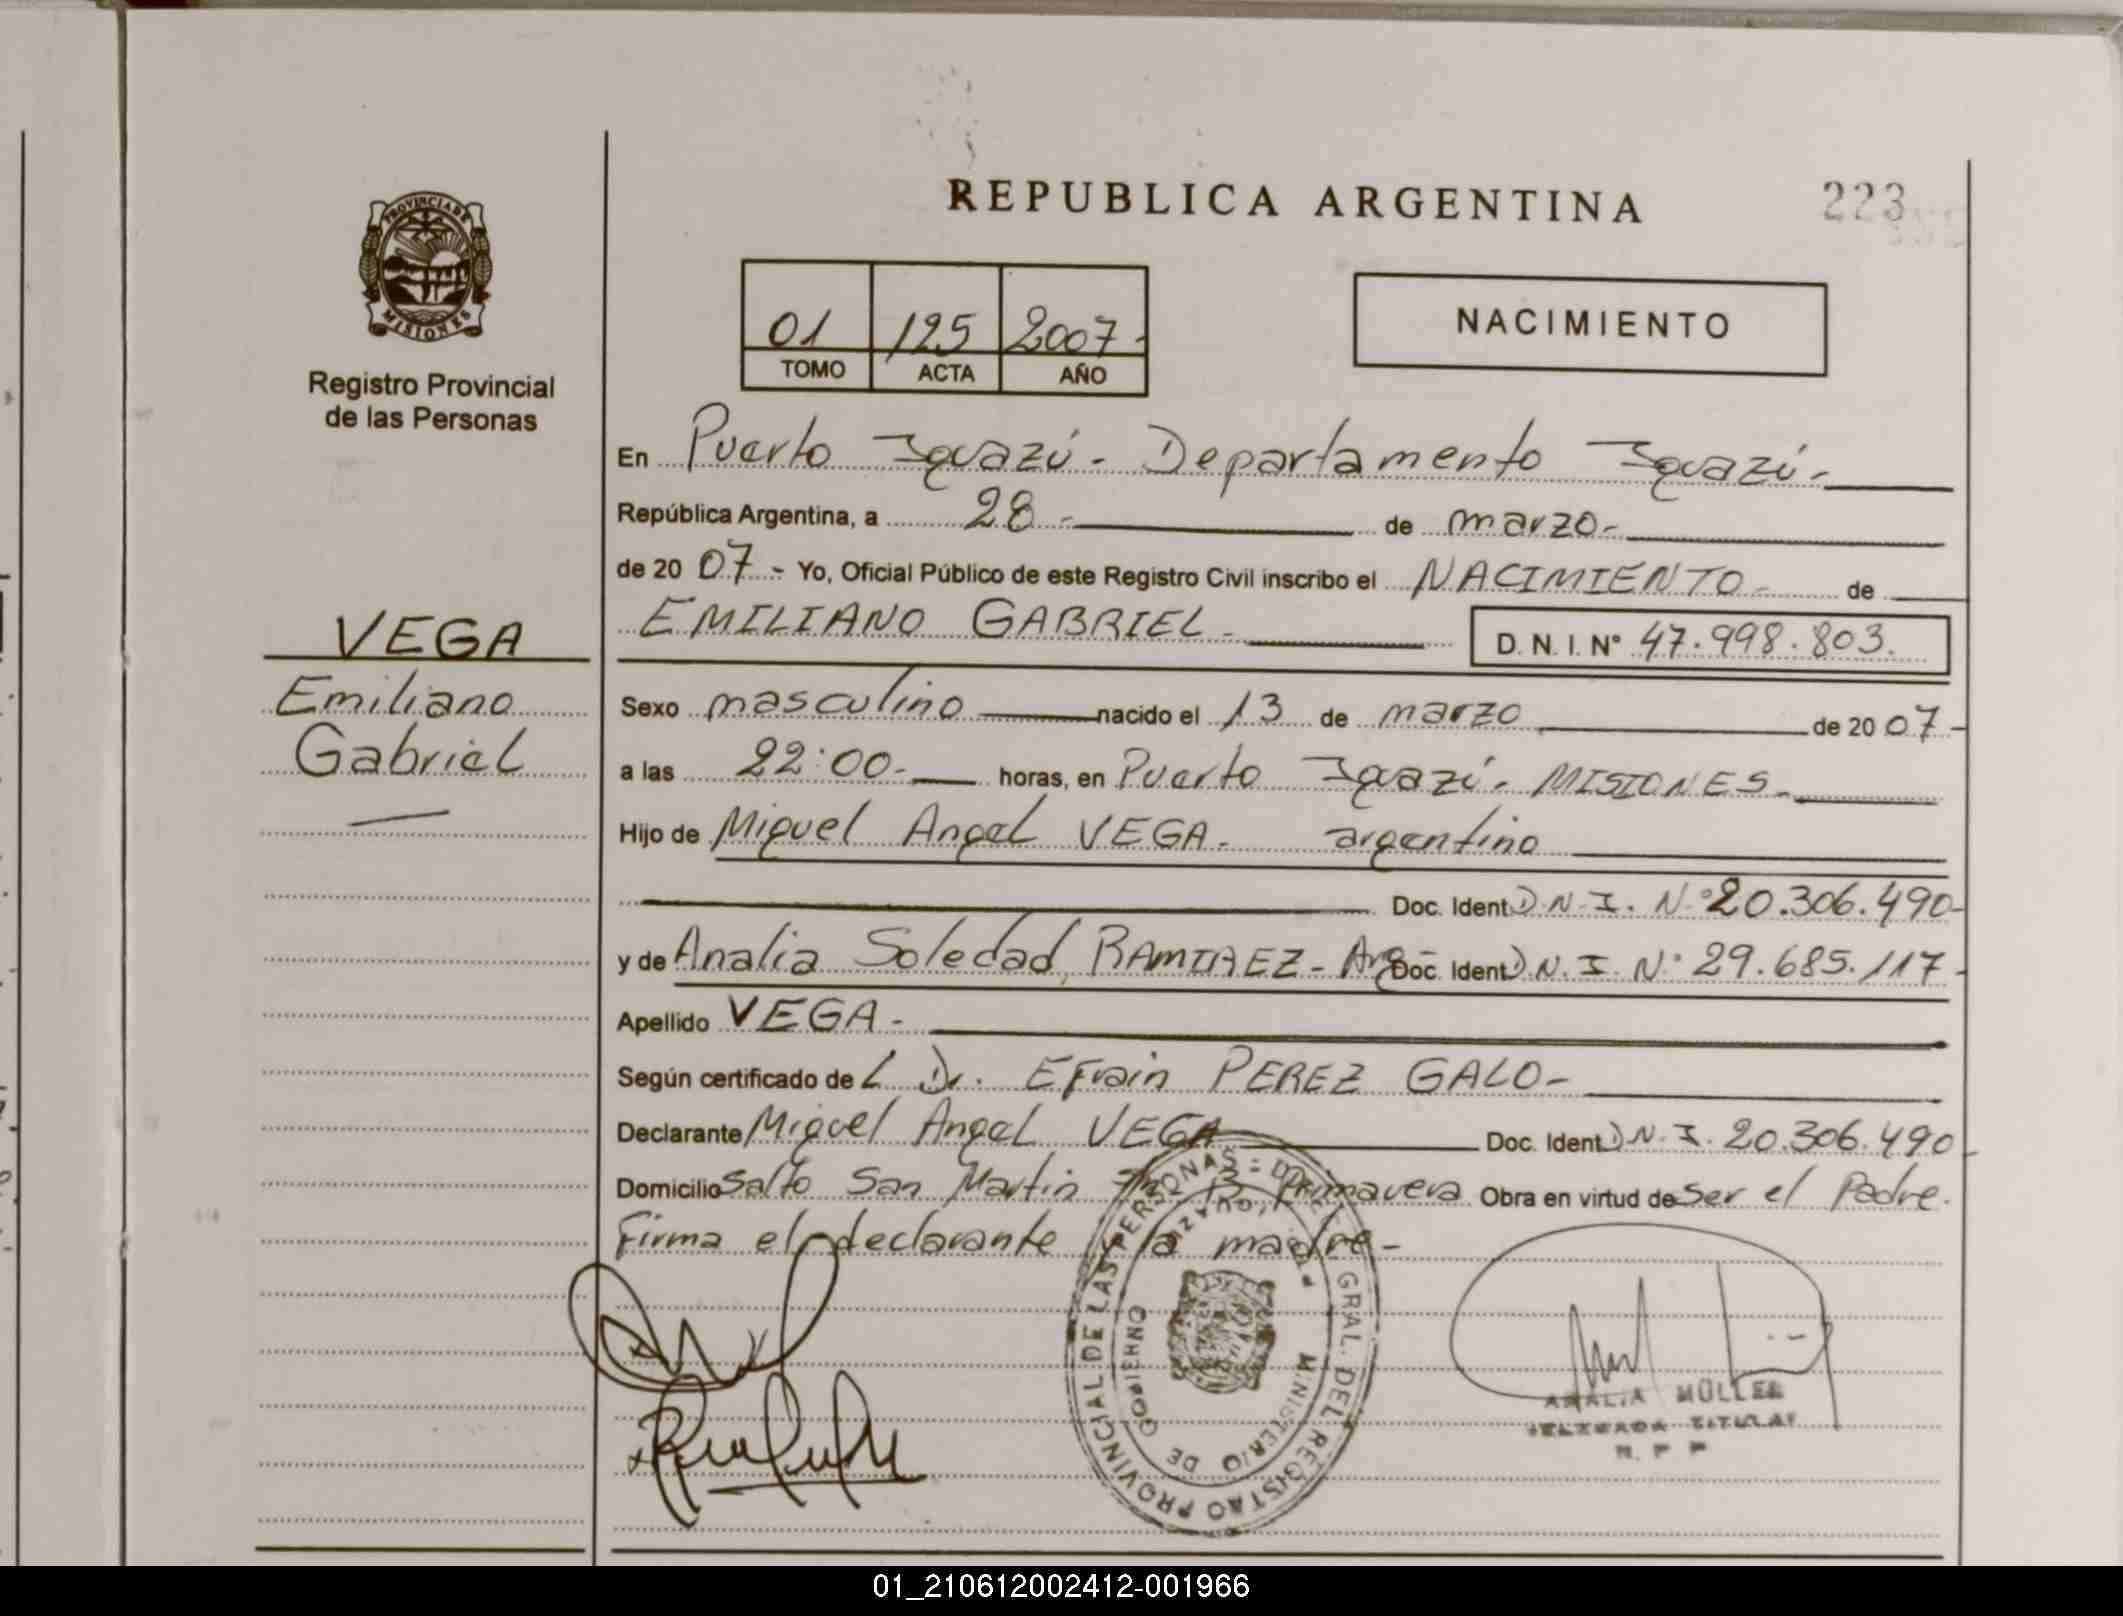 REPUBLICA ARGENTINA
223
PROVINCIA DE
MISIONES
Registro Provincial
de las Personas
01 125 2007-
TOMO ACTA AÑO
NACIMIENTO
En Puerto Iguazú - Departamento Iguazú -
República Argentina, a 28 - de marzo -
de 20 07 - Yo, Oficial Público de este Registro Civil inscribo el NACIMIENTO - de
EMILIANO GABRIEL - D. N. I. N° 47.998.803.
VEGA
Emiliano
Gabriel
Sexo masculino nacido el 13 de marzo de 20 07 -
a las 22:00 - horas, en Puerto Iguazú - MISIONES -
Hijo de Miguel Angel VEGA - argentino
Doc. Ident D.N.I. N° 20.306.490 -
y de Analia Soledad RAMIREZ - Arg Doc. Ident D.N.I. N° 29.685.117 -
Apellido VEGA -
Según certificado de L Dr. Efrain PEREZ GALO -
Declarante Miguel Angel VEGA Doc. Ident D.N.I. 20.306.490 -
Domicilio Salto San Martin Primavera Obra en virtud de Ser el Padre.
Firma el declarante y la madre -
PROVINCIAL DE LAS PERSONAS = GRAL. DEL REGISTRO
MINISTERIO DE GOBIERNO
AMALIA MÜLLER
DELEGADA TITULAR
R. P. P
01_210612002412-001966